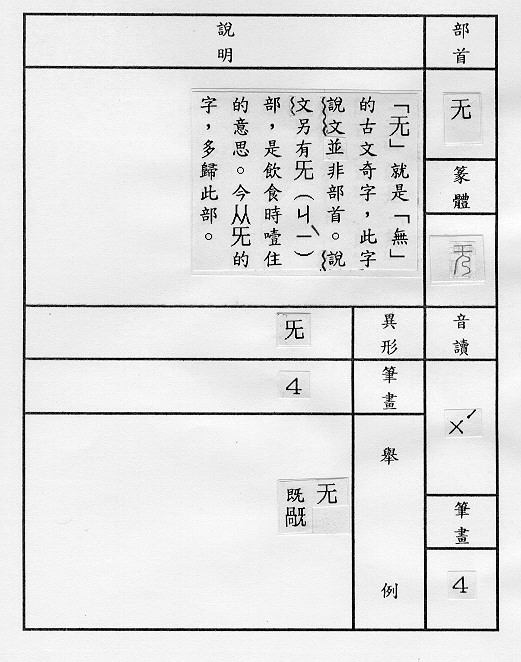 部首
无
篆體
无
音讀
ㄨˊ
筆畫
4
說明
「无」就是「無」
的古文奇字，此字
說文並非部首。說
文另有旡（ㄐㄧˋ）
部，是飲食時噎住
的意思。今从旡的
字，多歸此部。
異形
旡
筆畫
4
舉例
无
既